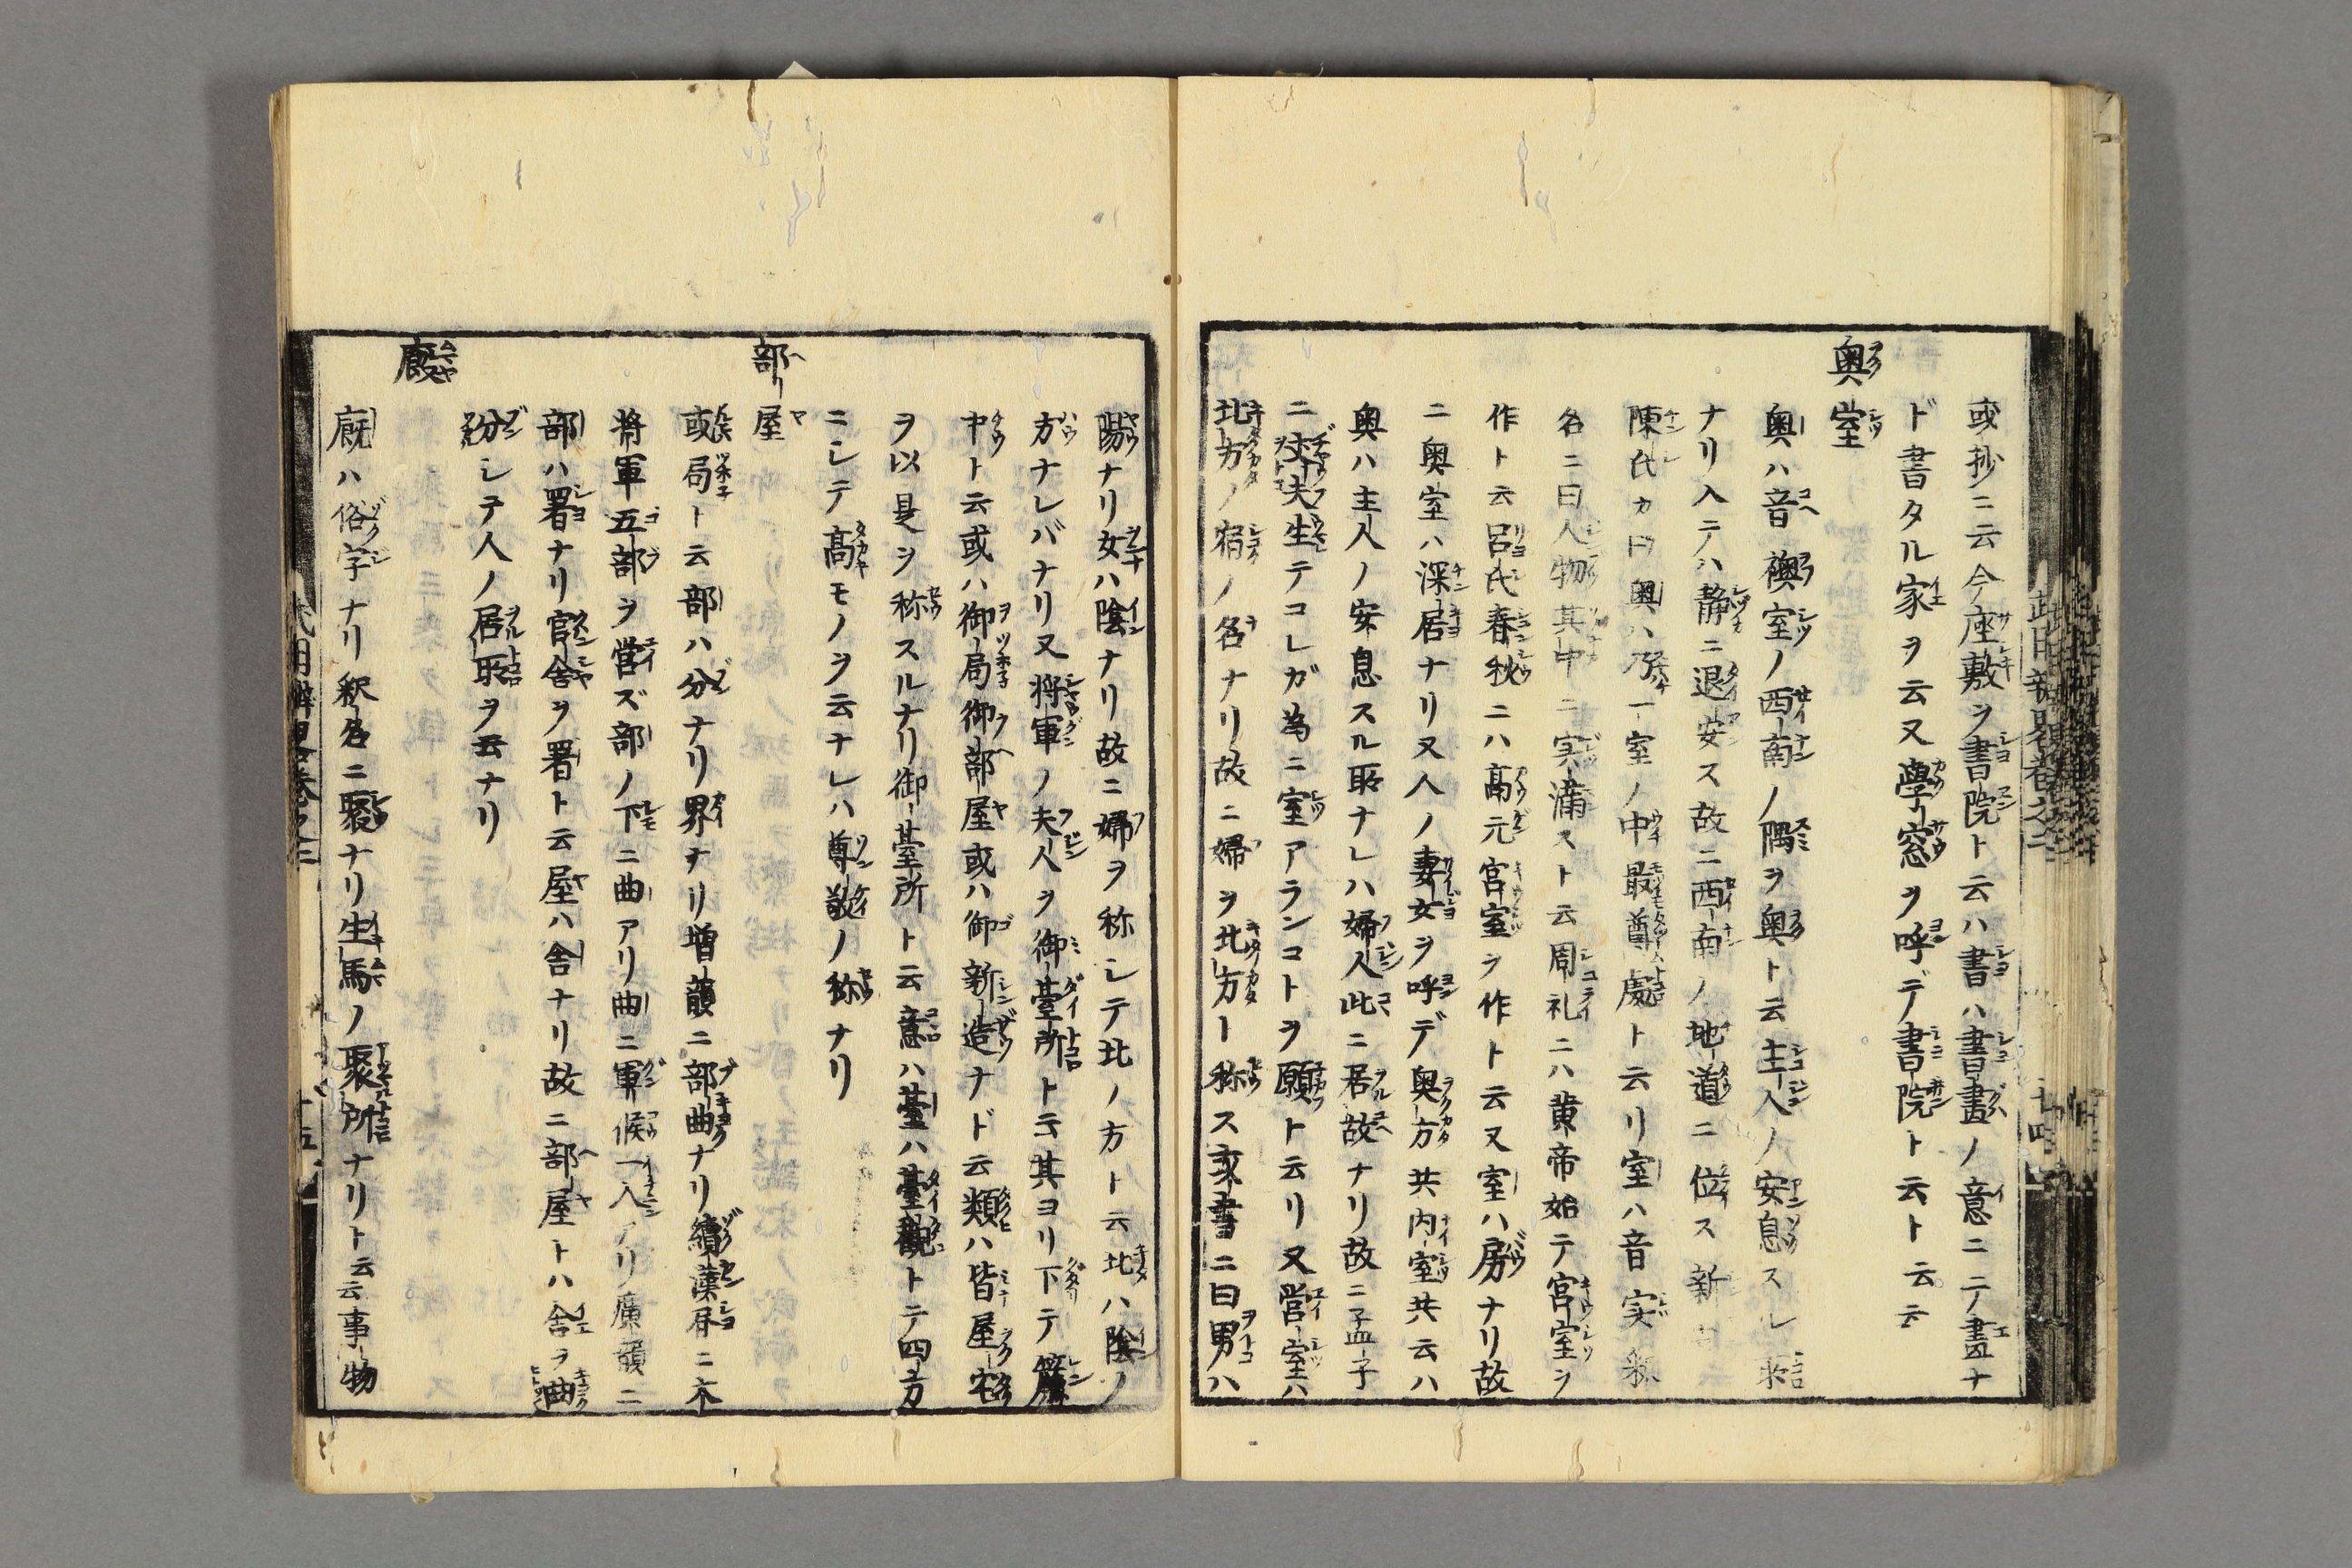 或抄ニ云今座敷ヲ書院ト云ハ書ハ書畫ノ意ニテ畫ナ
ド書タル家ヲ云又學窓ヲ呼デ書院ト云ト云云
奥室
奥ハ音襖室ノ西南ノ隅ヲ奥ト云主人ノ安息スル所
ナリ入テハ静ニ退安ス故ニ西南ノ地道ニ位ス新
陳氏カ曰奥ハ一室ノ中最尊處ト云リ室ハ音実釈
名ニ曰人物其中ニ実満スト云周礼ニハ黄帝始テ宮室ヲ
作ト云呂氏春秋ニハ高元宮室ヲ作ト云又室ハ房ナリ故
ニ奥室ハ深居ナリ又人ノ妻女ヲ呼デ奥方共内室共云ハ
奥ハ主人ノ安息スル所ナレハ婦人此ニ居故ナリ故ニ孟子
ニ丈夫生テコレガ為ニ室アランコトヲ願ト云リ又営室ハ
北方ノ宿ノ名ナリ故ニ婦ヲ北方ト称ス家書ニ曰男ハ
陽ナリ女ハ陰ナリ故ニ婦ヲ称シテ北ノ方ト云北ハ陰ノ
方ナレバナリ又将軍ノ夫人ヲ御臺所ト云其ヨリ下テ簾
中ト云或ハ御局御部屋或ハ御新造ナド云類ハ皆屋宅
ヲ以是ヲ称スルナリ御臺所ト云意ハ臺ハ臺觀トテ四方
ニシテ高モノヲ云ナレハ尊敬ノ称ナリ
部屋
或局ト云部ハ分ナリ界ナリ増韻ニ部曲ナリ續漢書ニ大
将軍五部ヲ営ズ部ノ下ニ曲アリ曲ニ軍候一人アリ廣韻ニ
部ハ署ナリ官舎ヲ署ト云屋ハ舎ナリ故ニ部屋トハ舎ヲ曲
分シテ人ノ居所ヲ云ナリ
廄
廐ハ俗字ナリ釈名ニ聚ナリ生馬ノ聚所ナリト云云事物